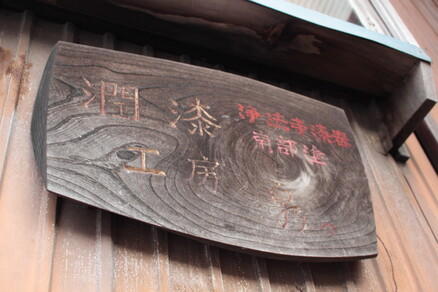 潤漆
工房
浄法寺漆器
南部塗